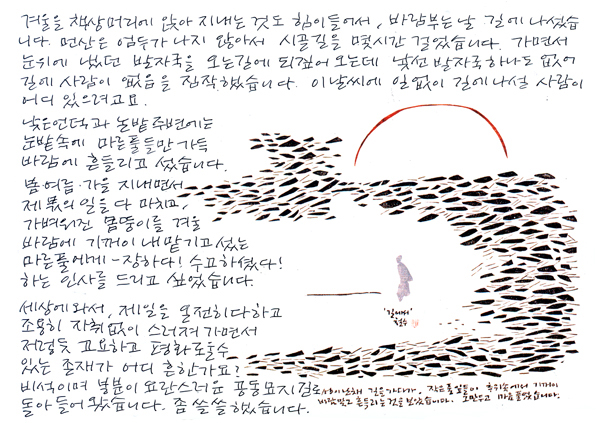 겨울을 책상머리에 앉아 지내는 것도 힘이들어서, 바람부는 날 길에 나섰습
니다. 먼산은 엄두가 나지 않아서 시골길을 몇시간 걸었습니다. 가면서
눈위에 냈던 발자국을 오는길에 되짚어 오는데 낯선 발자국 하나도 없어
길에 사람이 없음을 짐작했습니다. 이날씨에 일없이 길에나설 사람이
어디 있으려고요.
낮은언덕과 논밭 주변에는
눈밭속에 마른풀들만 가득
바람에 흔들리고 섰습니다.
봄 여름·가을 지내면서
제 몫의 일을 다 마치고,
가벼워진 몸뚱이를 겨울
바람에 기꺼이 내맡기고 섰는
마른풀에게 - 장하다! 수고하셨다!
하는 인사를 드리고 싶었습니다.
세상에 와서, 제일을 열심히 다하고
조용히 자취없이 스러져 가면서
저렇듯 고요하고 평화로울수
있는 존재가 어디 흔한가요?
비석이며 봉분이 요란스러운 공동묘지길로
돌아 들어 왔습니다. 좀 쓸쓸했습니다.
'길에서'
철수
길을 가다가, 작은풀들이 눈위에서 기꺼이
바람맞고 흔들리는 것을 보았습니다. 마른풀이었습니다.